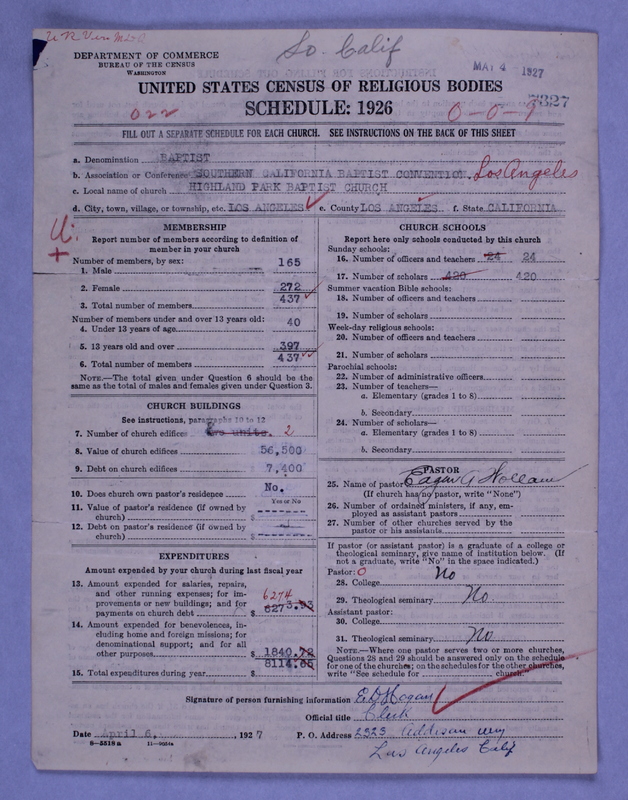 So. Calif
DEPARTMENT OF COMMERCE
BUREAU OF THE CENSUS
WASHINGTON
MAY 4 1927
UNITED STATES CENSUS OF RELIGIOUS BODIES
SCHEDULE: 1926
022
0-0-9
7327
FILL OUT A SEPARATE SCHEDULE FOR EACH CHURCH. SEE INSTRUCTIONS ON THE BACK OF THIS SHEET
a. Denomination BAPTIST
b. Association or Conference SOUTHERN CALIFORNIA BAPTIST CONVENTION. Los Angeles
c. Local name of church HIGHLAND PARK BAPTIST CHURCH
d. City, town, village, or township, etc. LOS ANGELES e. County LOS ANGELES f. State CALIFORNIA
U.
MEMBERSHIP
Report number of members according to definition of
member in your church
Number of members, by sex:
1. Male 165
2. Female 272
3. Total number of members 437
Number of members under and over 13 years old:
4. Under 13 years of age 40
5. 13 years old and over 397
6. Total number of members 437
NOTE.—The total given under Question 6 should be the
same as the total of males and females given under Question 3.
CHURCH BUILDINGS
See instructions, paragraphs 10 to 12
7. Number of church edifices two units. 2
8. Value of church edifices 56,500
9. Debt on church edifices 7,400
10. Does church own pastor's residence No.
Yes or No
11. Value of pastor's residence (if owned by
church) $
12. Debt on pastor's residence (if owned by
church) $
EXPENDITURES
Amount expended by your church during last fiscal year
13. Amount expended for salaries, repairs,
and other running expenses; for im-
provements or new buildings; and for
payments on church debt $ 6273.93 6274
14. Amount expended for benevolences, in-
cluding home and foreign missions; for
denominational support; and for all
other purposes $ 1840.72
15. Total expenditures during year $ 8114.65
CHURCH SCHOOLS
Report here only schools conducted by this church
Sunday schools:
16. Number of officers and teachers 24 24
17. Number of scholars 420 420
Summer vacation Bible schools:
18. Number of officers and teachers
19. Number of scholars
Week-day religious schools:
20. Number of officers and teachers
21. Number of scholars
Parochial schools:
22. Number of administrative officers
23. Number of teachers—
a. Elementary (grades 1 to 8)
b. Secondary
24. Number of scholars—
a. Elementary (grades 1 to 8)
b. Secondary
PASTOR
25. Name of pastor
(If church has no pastor, write "None")
26. Number of ordained ministers, if any, em-
ployed as assistant pastors
27. Number of other churches served by the
pastor or his assistants
If pastor (or assistant pastor) is a graduate of a college or
theological seminary, give name of institution below. (If
not a graduate, write "No" in the space indicated.)
Pastor: 0
28. College No
29. Theological seminary No.
Assistant pastor:
30. College
31. Theological seminary No
NOTE.—Where one pastor serves two or more churches,
Questions 28 and 29 should be answered only on the schedule
for one of the churches; on the schedules for the other churches,
write "See schedule for church.
Signature of person furnishing information E.D. Hogan
Official title Clerk
Date April 6, 1927 P. O. Address 2523 Addison Way
Los Angeles Calif
8—5518 a